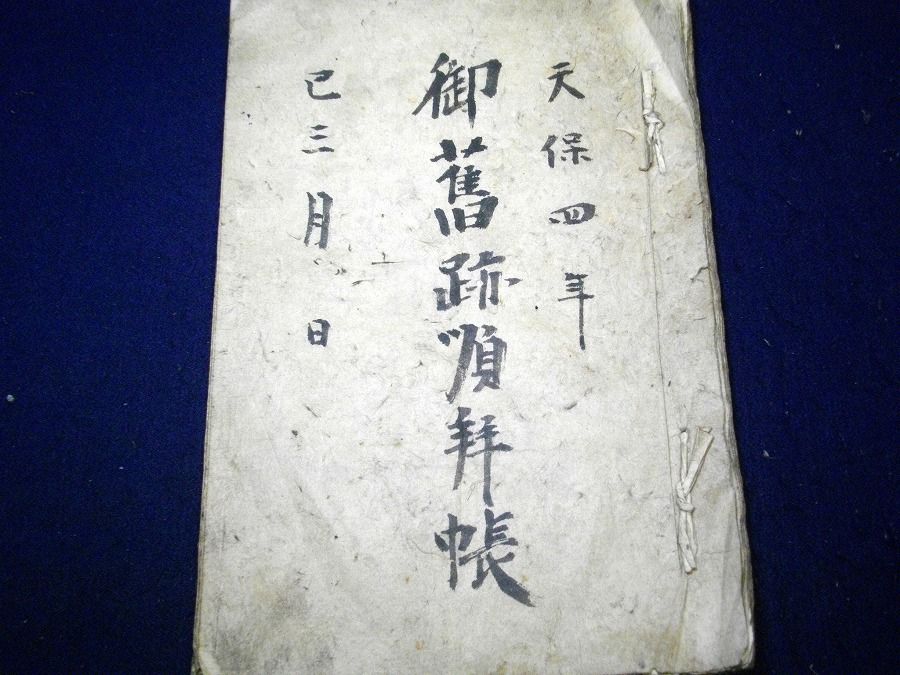 天保四年
御舊跡順拜帳
巳三月日